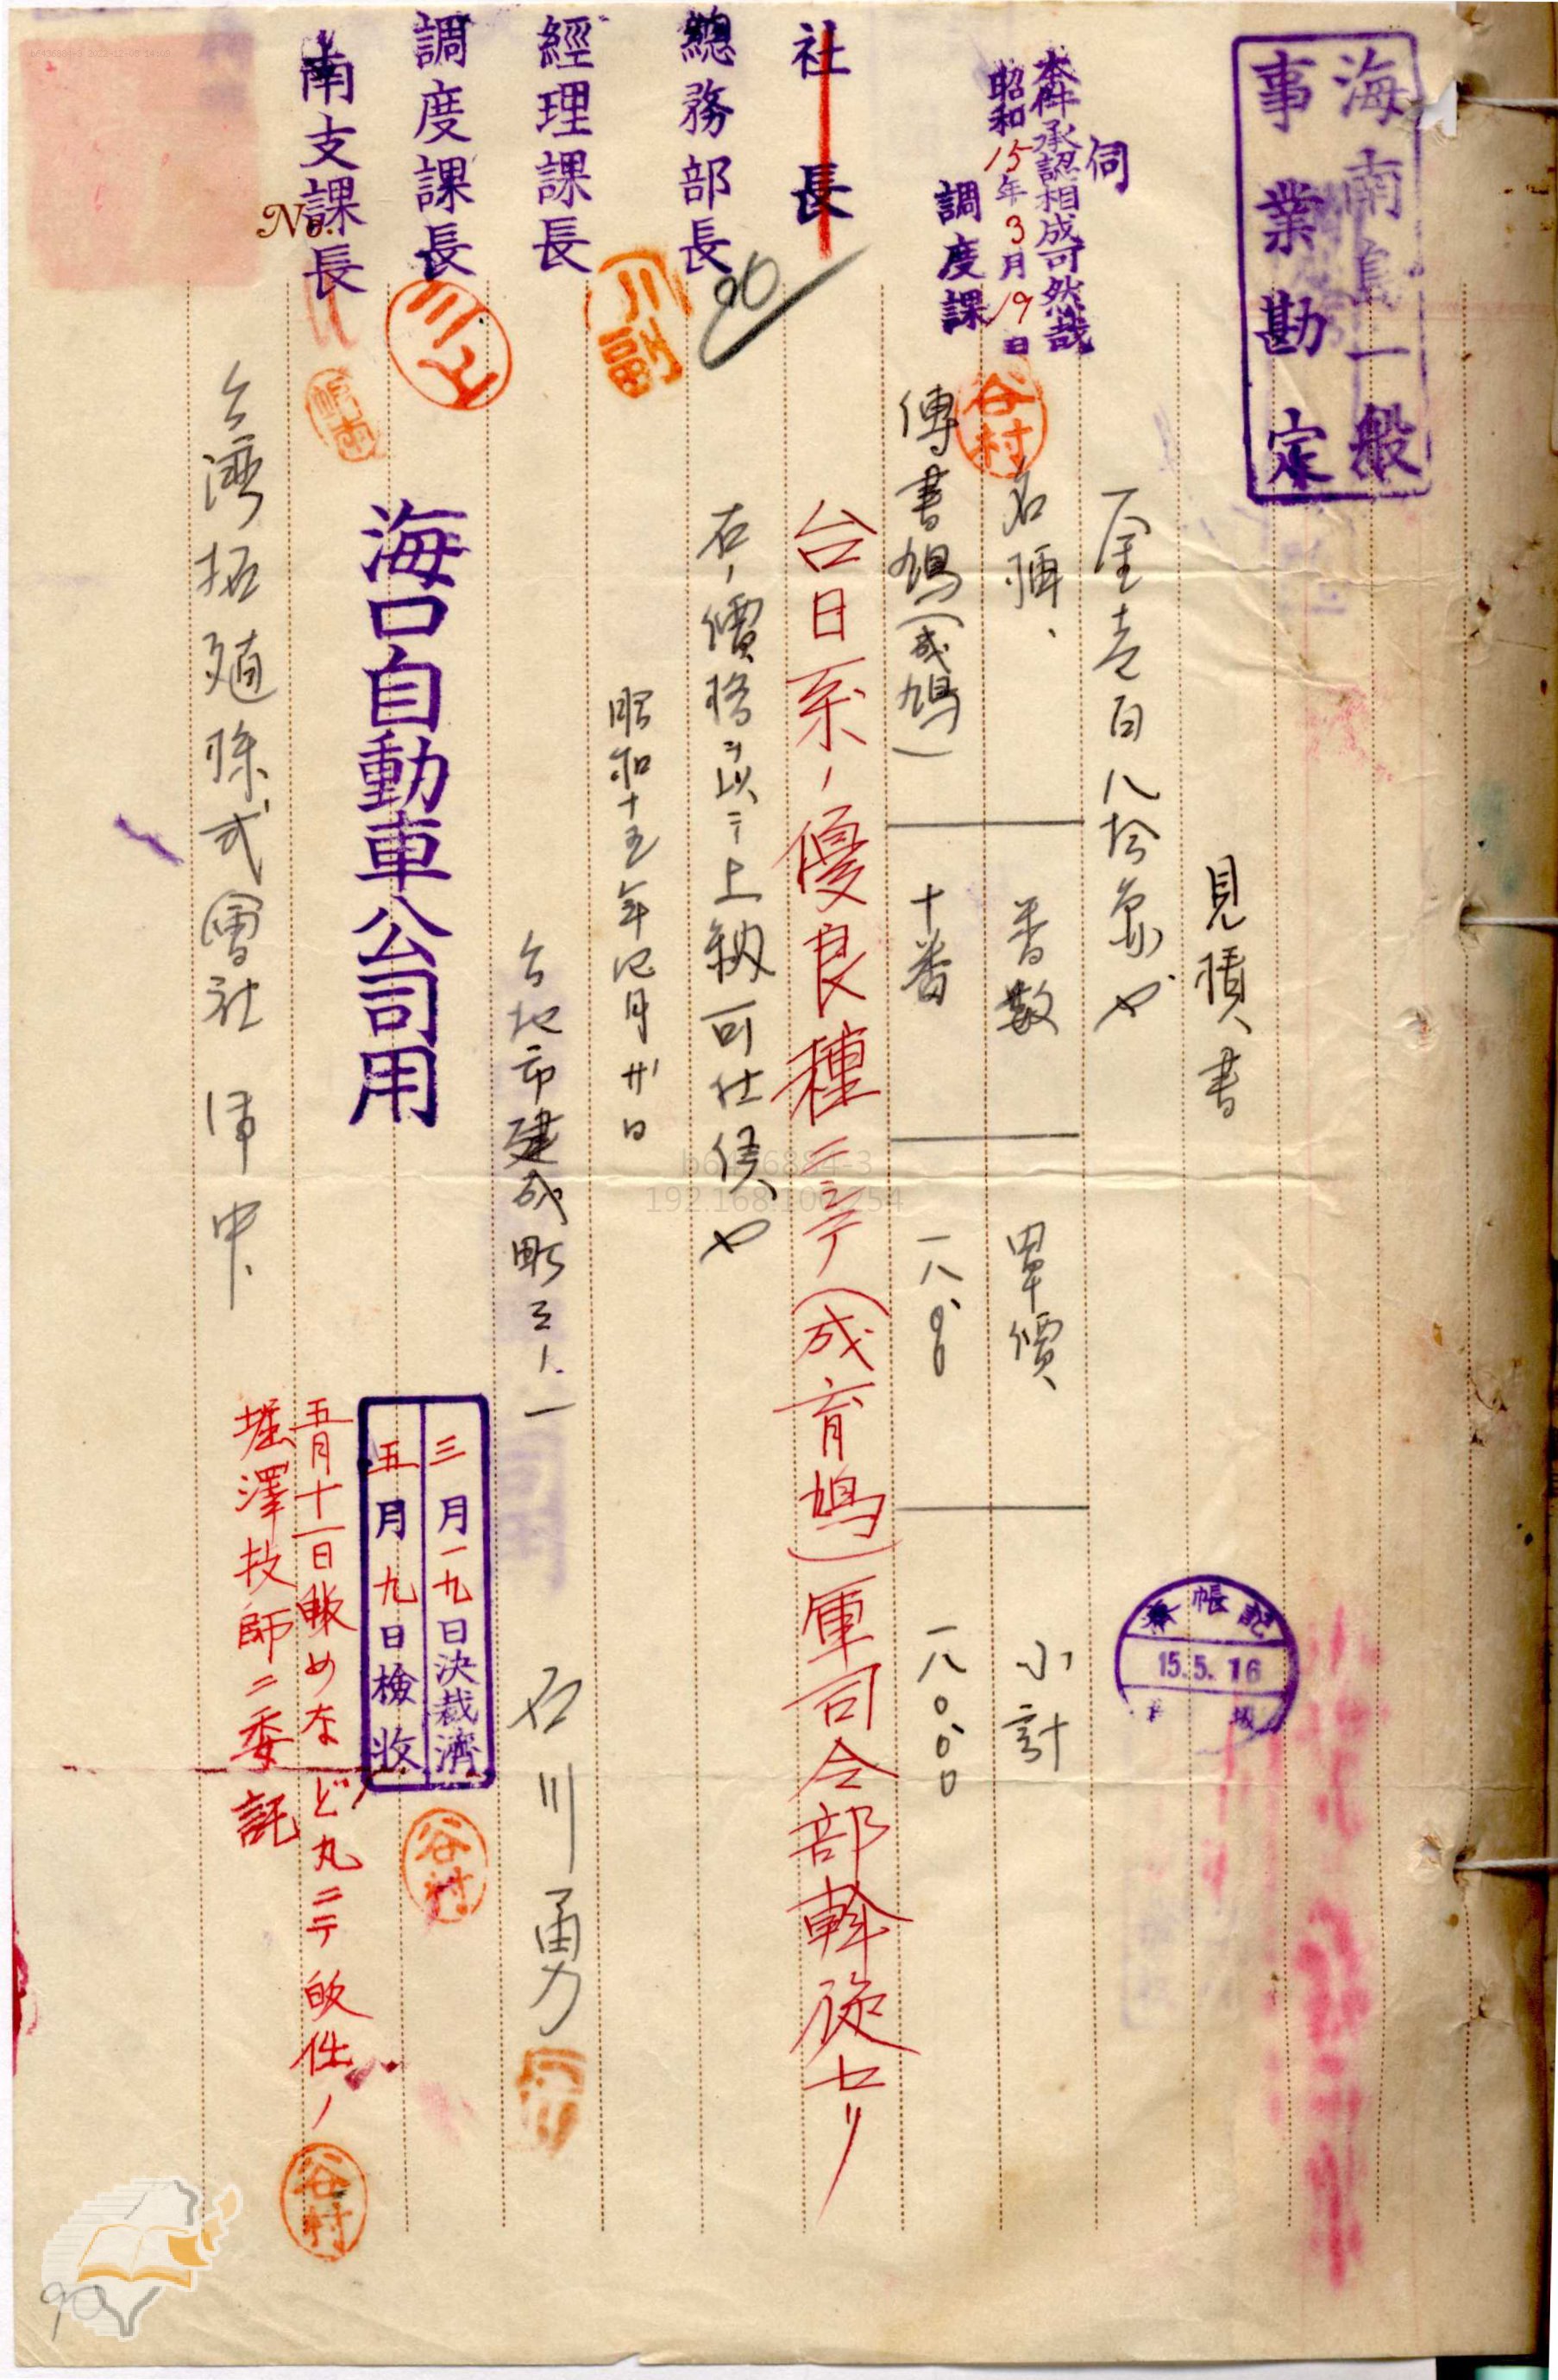 海南島一般
事業勘定
見積書
一金壱百八拾円也
伺
本件承認相成可然哉
昭和15年3月19日
調度課
谷村
名稱、
番数
單價
小計
傳書鳩(成鳩)
十番
一八.00
一八0.00
社長
台日系ノ優良種ニテ(成育鳩)軍司令部斡旋セリ
總務部長
右ノ價格ヲ以テ上納可仕候也
經理課長
昭和十五年 月廿日
調度課長
三上
台北市建成町三ノ一
石川勇
南支課長
No.
海口自動車公司用
台湾拓殖株式會社 御中
記帳
15.5.16
三月一九日決裁濟
五月九日檢收
谷村
五月十一日 めなど丸ニテ 件ノ
堀澤技師ニ委託
谷村
b6436884-3
192.168.100.254
90